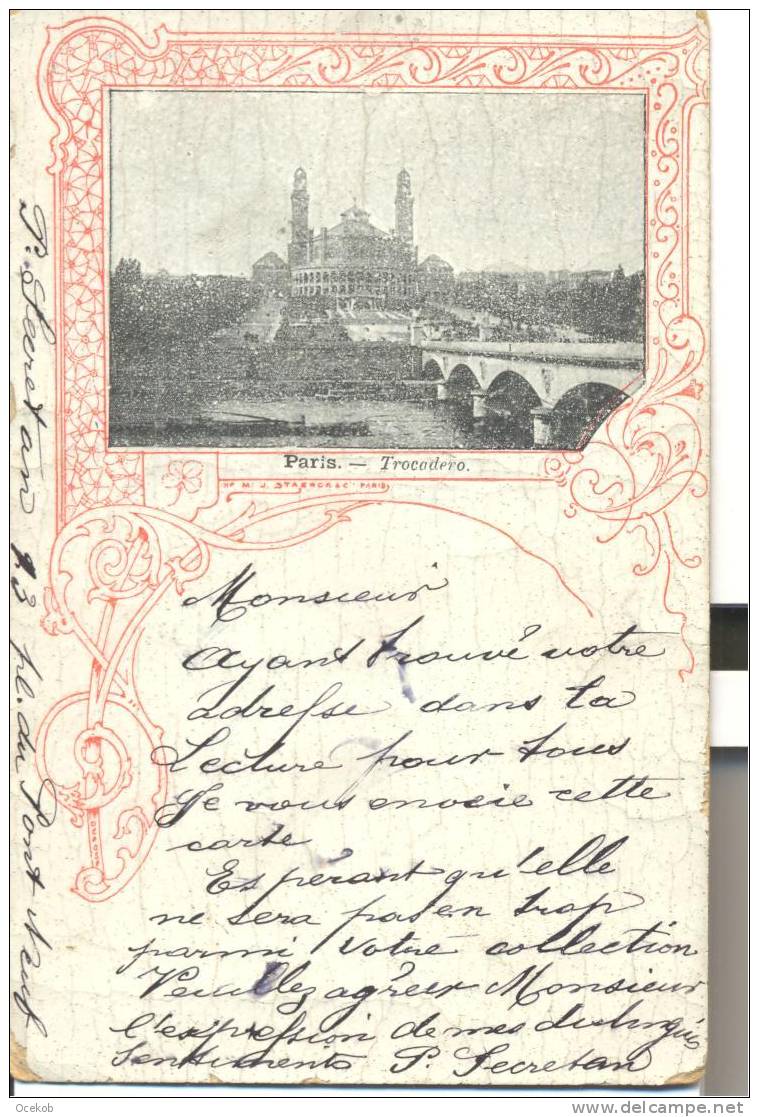 Paris. — Trocadero.
Mⁿ J. STAERCK & Cⁱᵉ PARIS
Monsieur
Ayant trouvé votre
adresse dans la
Lecture pour tous
Je vous envoie cette
carte
Espérant qu'elle
ne sera pas en trop
parmi votre collection
Veuillez agréer Monsieur
l'expression de mes distingués
sentiments P. Secretan
P. Secretan 13 pl. du Pont Neuf
DEPOSE
Ocekob
http://www.delcampe.net